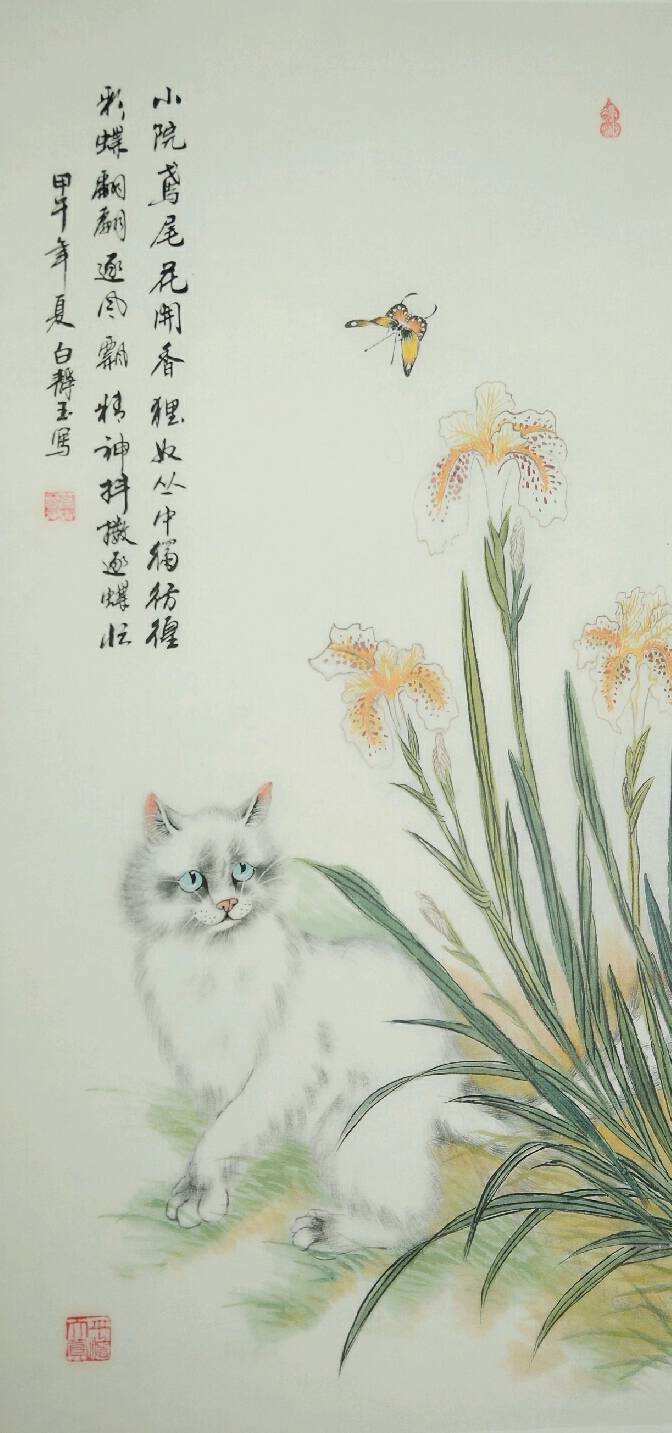 小院鸢尾花開香狸奴丛中獨彷徨
彩蝶翩翩逐风飘精神抖擞逐蝶忙
甲午年夏白靜玉写